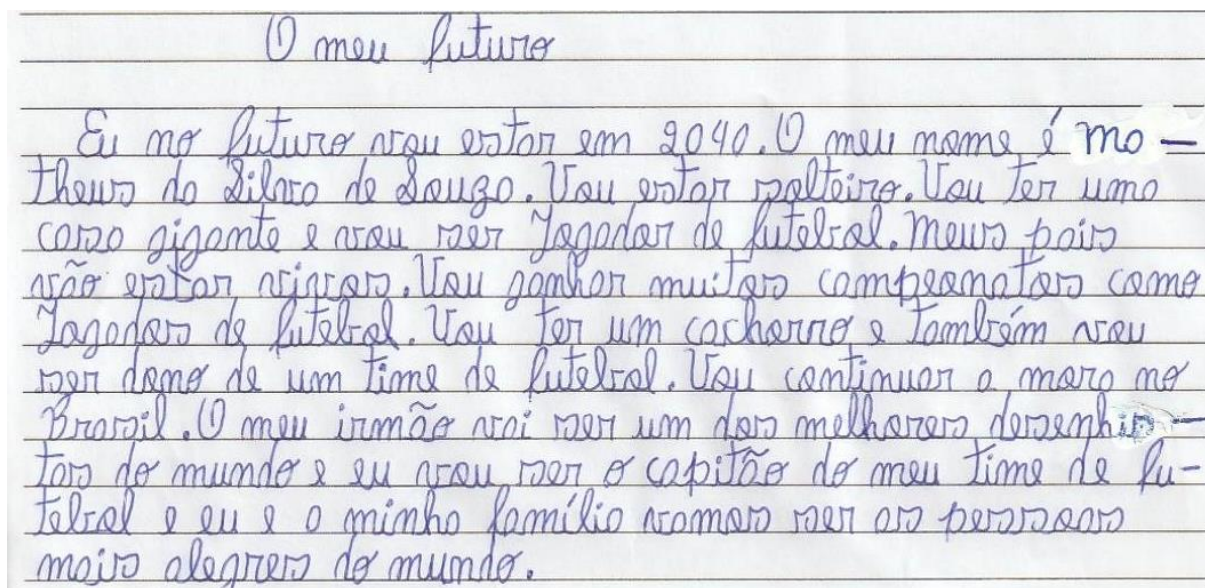 O meu futuro
Eu no futuro vou estar em 2040. O meu nome é Ma-
theus da Silva de Souza. Vou estar solteiro. Vou ter uma
casa gigante e vou ser Jogador de futebol. Meus pais
vão estar vivos. Vou ganhar muitos campeonatos como
Jogador de futebol. Vou ter um cachorro e também vou
ser dono de um time de futebol. Vou continuar a mora no
Brasil. O meu irmão vai ser um dos melhores desenhis-
tas do mundo e eu vou ser o capitão do meu time de fu-
tebol e eu e a minha família vamos ser as pessoas
mais alegres do mundo.